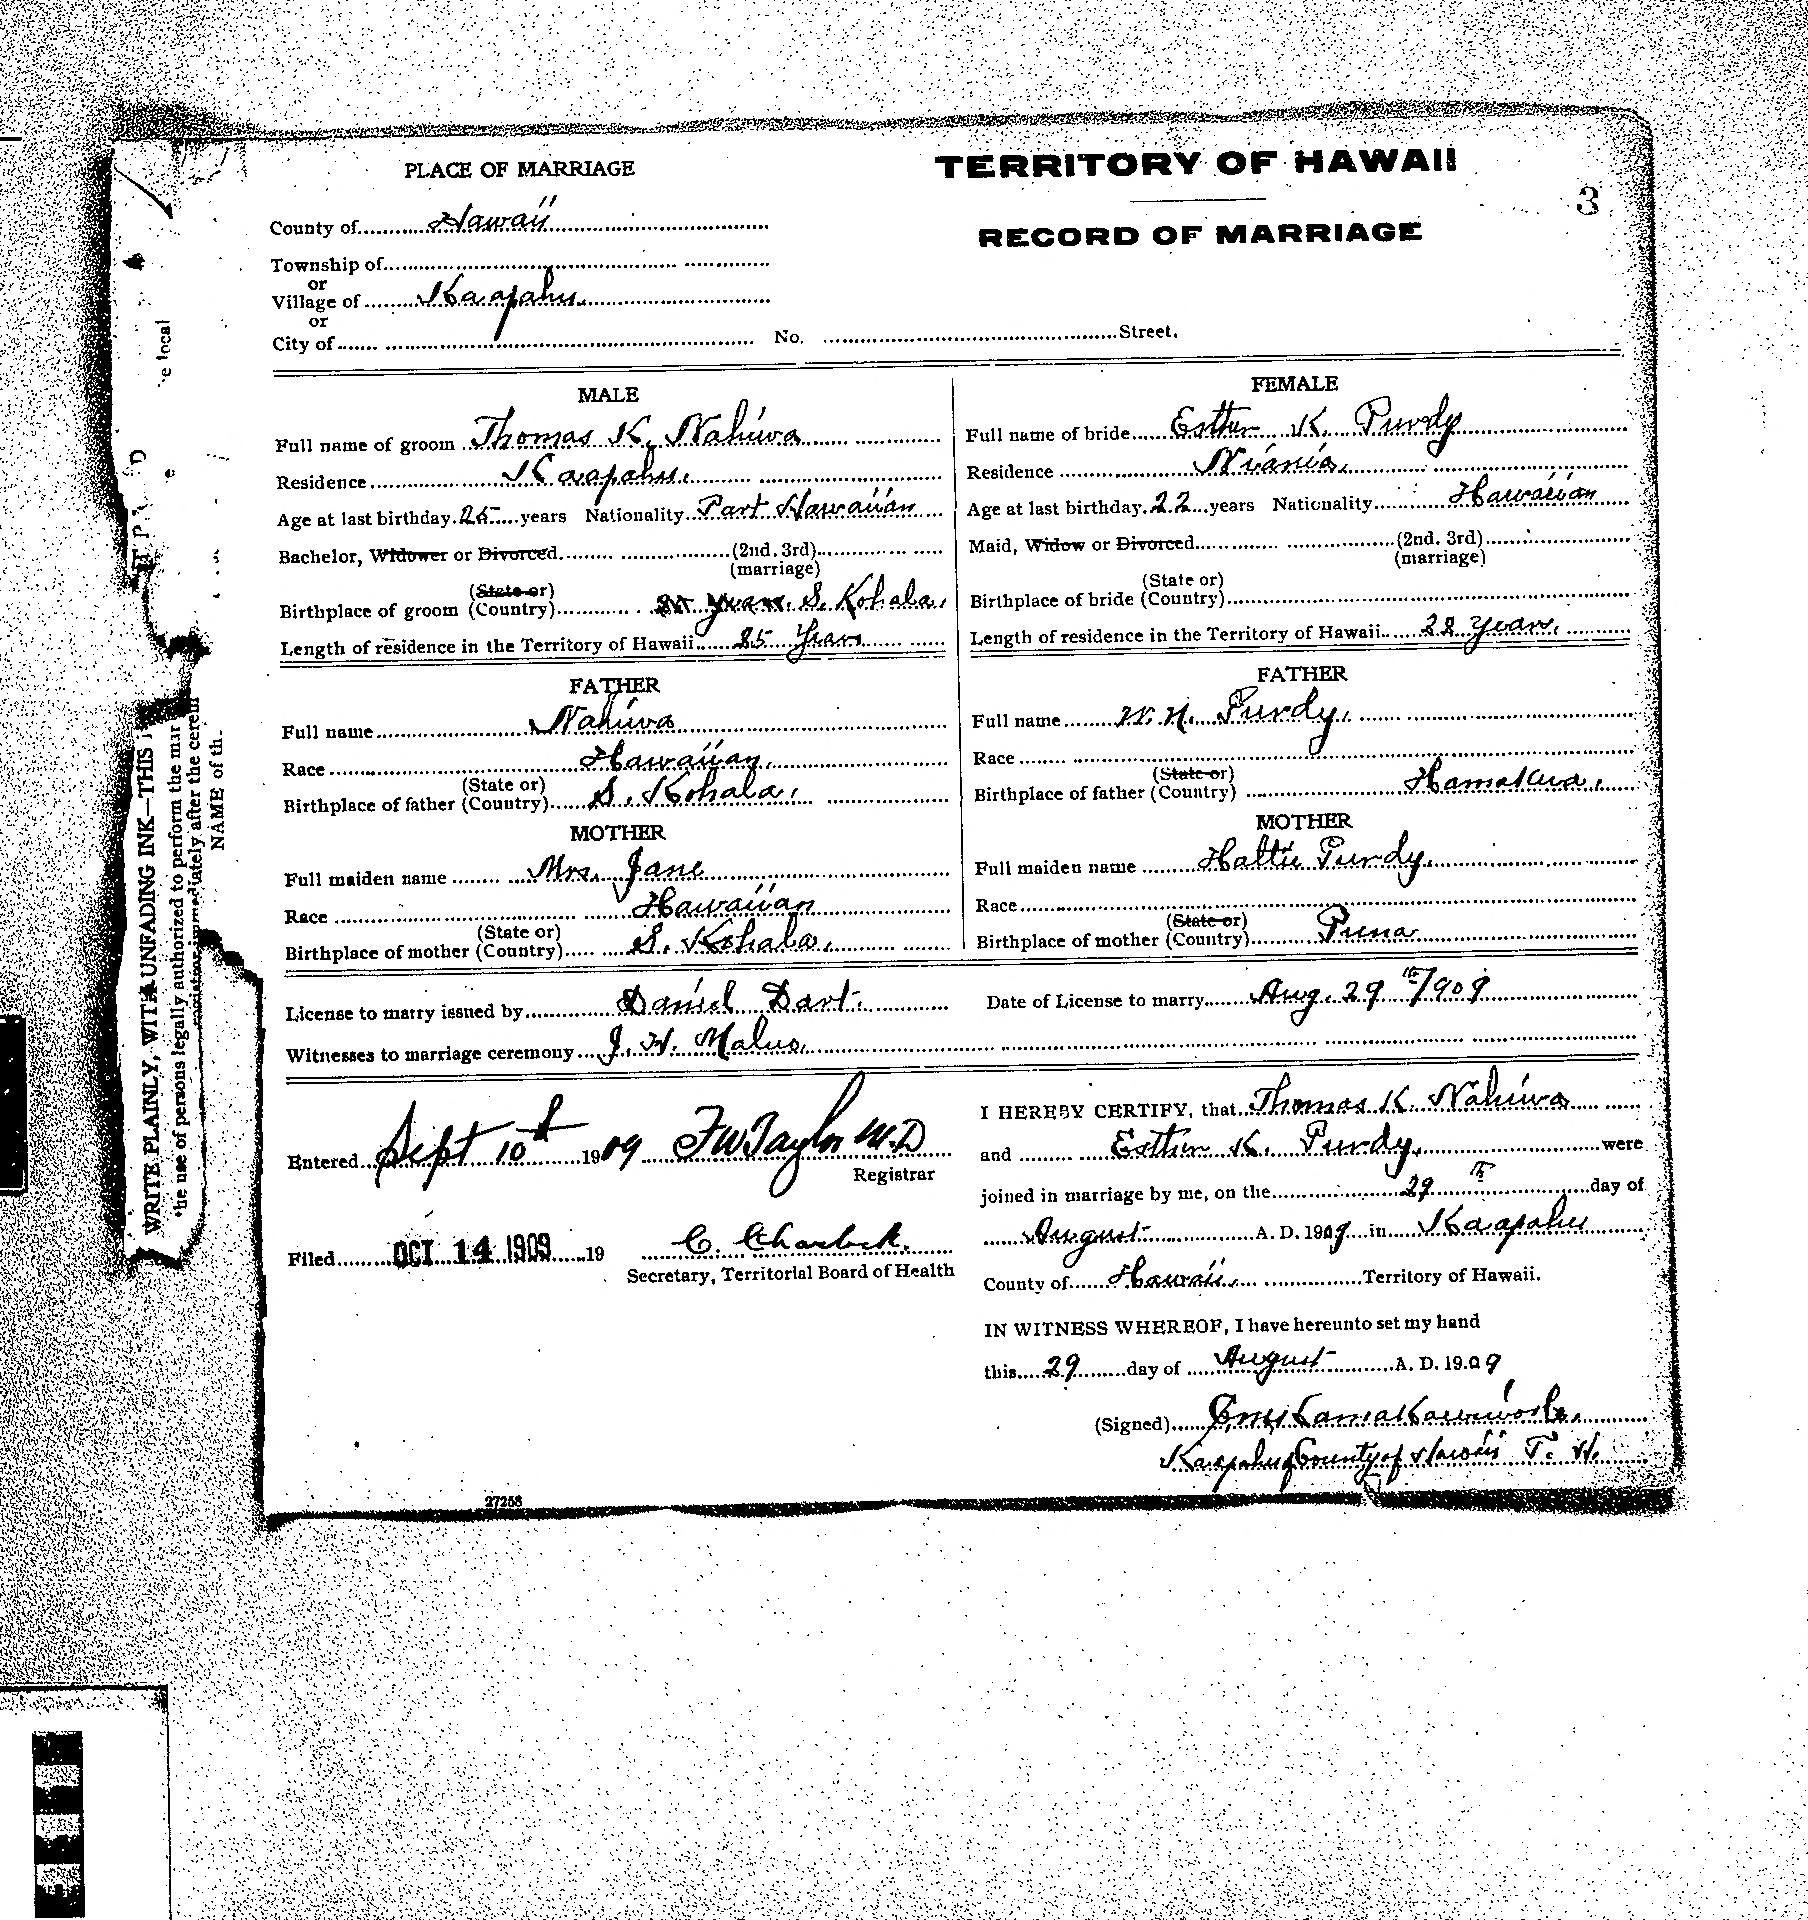 PLACE OF MARRIAGE
TERRITORY OF HAWAII
3
County of Hawaii
RECORD OF MARRIAGE
Township of
or
Village of Kaapahu.
or
City of No. Street.
MALE
Full name of groom Thomas K. Nahiwa
Residence Kaapahu.
Age at last birthday. 25 years Nationality Part Hawaiian
Bachelor, Widower or Divorced (2nd. 3rd)
(marriage)
(State or)
Birthplace of groom (Country) S. Kohala.
Length of residence in the Territory of Hawaii 25 Years
FATHER
Full name Nahiwa
Race Hawaiian.
(State or)
Birthplace of father (Country) S. Kohala.
MOTHER
Full maiden name Mrs. Jane
Race Hawaiian
(State or)
Birthplace of mother (Country) S. Kohala.
FEMALE
Full name of bride Esther K. Purdy
Residence Niania.
Age at last birthday. 22 years Nationality Hawaiian
Maid, Widow or Divorced (2nd. 3rd)
(marriage)
(State or)
Birthplace of bride (Country)
Length of residence in the Territory of Hawaii 22 Years.
FATHER
Full name W. H. Purdy.
Race
(State or)
Birthplace of father (Country) Hamakua.
MOTHER
Full maiden name Hattie Purdy.
Race
(State or)
Birthplace of mother (Country) Puna
License to marry issued by Daniel Dart. Date of License to marry Aug. 29th/1909
Witnesses to marriage ceremony J. H. Maluo.
Entered Sept 10th 1909 F W Taylor M.D
Registrar
Filed OCT 14 1909 19
Secretary, Territorial Board of Health
I HEREBY CERTIFY, that Thomas K. Nahiwa
and Esther K. Purdy. were
joined in marriage by me, on the 29th day of
August A. D. 1909 in Kaapahu
County of Hawaii. Territory of Hawaii.
IN WITNESS WHEREOF, I have hereunto set my hand
this 29 day of August A. D. 1909
(Signed)
Kaapahu County of Hawaii T. H.
27258
WRITE PLAINLY, WITH UNFADING INK—THIS
the use of persons legally authorized to perform the mar
immediately after the cerem
NAME of th
e local